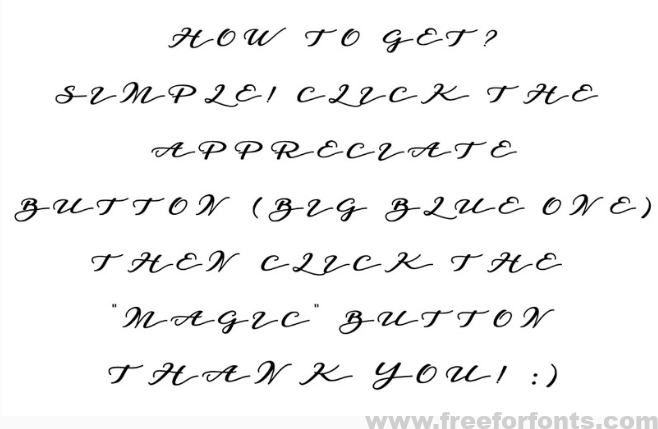 HOW TO GET?
SIMPLE! CLICK THE
APPRECIATE
BUTTON (BIG BLUE ONE)
THEN CLICK THE
"MAGIC" BUTTON
THANK YOU! :)
www.freeforfonts.com